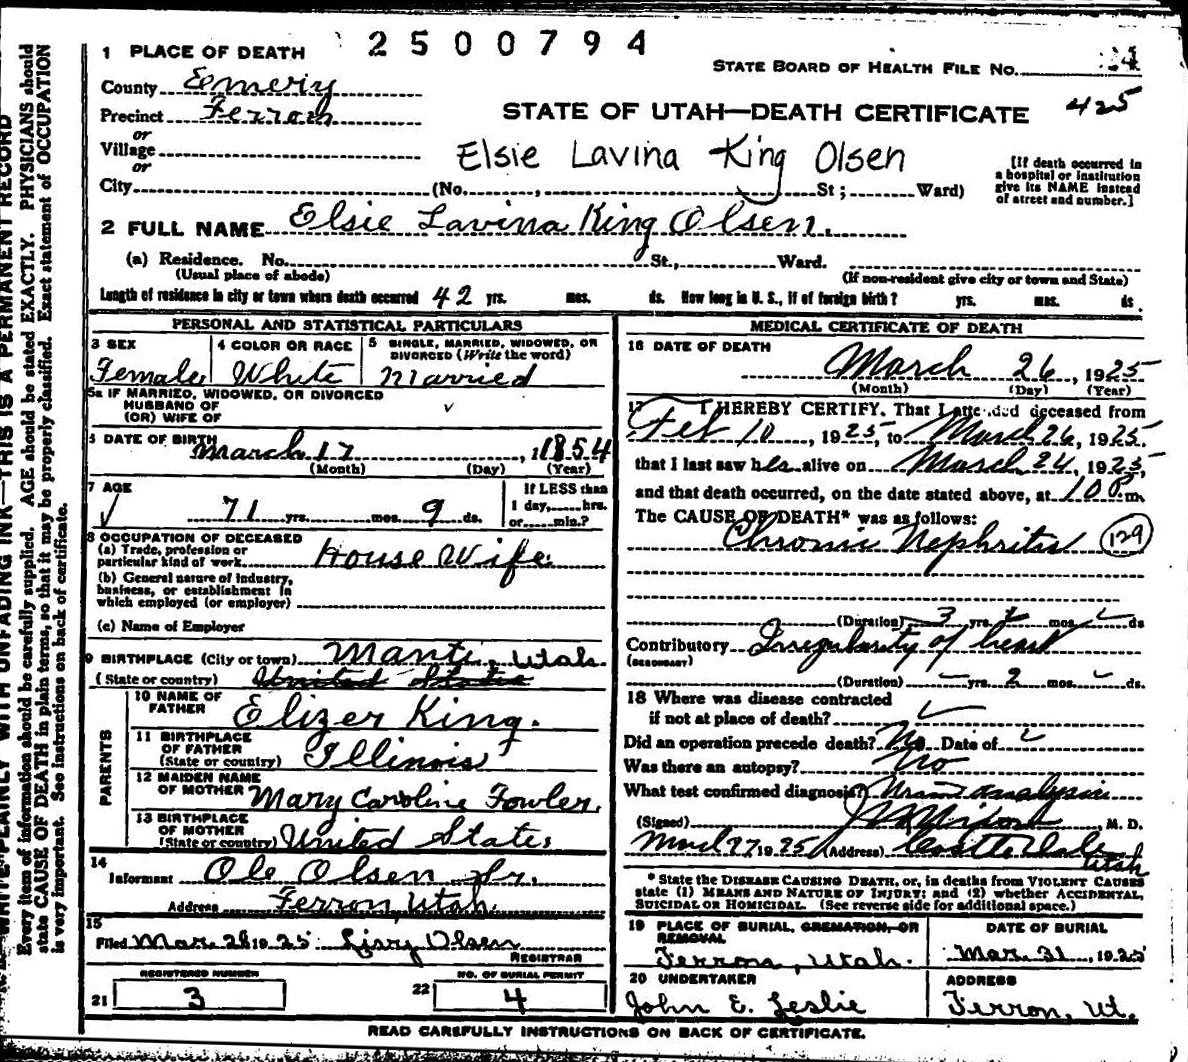 2500794
1 PLACE OF DEATH
STATE BOARD OF HEALTH FILE NO. 24
County Emery
425
Precinct Ferron
STATE OF UTAH—DEATH CERTIFICATE
or
Village
or
Elsie Lavina King Olsen
[If death occurred in a hospital or institution give its NAME instead of street and number.]
City (No. , St; Ward)
2 FULL NAME Elsie Lavina King Olsen.
(a) Residence. No. St., Ward.
(Usual place of abode) (If non-resident give city or town and State)
Length of residence in city or town where death occurred 42 yrs. mos. ds. How long in U. S., if of foreign birth? yrs. mos. ds
PERSONAL AND STATISTICAL PARTICULARS
3 SEX
Female
4 COLOR OR RACE
White
5 SINGLE, MARRIED, WIDOWED, OR DIVORCED (Write the word)
Married
5a IF MARRIED, WIDOWED, OR DIVORCED
HUSBAND OF
(OR) WIFE OF
DATE OF BIRTH March 17, 1854
(Month) (Day) (Year)
7 AGE
71 yrs. mos. 9 ds.
If LESS than
1 day, hrs.
or min.?
8 OCCUPATION OF DECEASED
(a) Trade, profession or
particular kind of work House Wife
(b) General nature of industry,
business, or establishment in
which employed (or employer)
(c) Name of Employer
9 BIRTHPLACE (City or town) Manti, Utah
(State or country) United States
PARENTS
10 NAME OF
FATHER Elizer King.
11 BIRTHPLACE
OF FATHER
(State or country) Illinois
12 MAIDEN NAME
OF MOTHER Mary Caroline Fowler
13 BIRTHPLACE
OF MOTHER
(State or country) United States
14
Informant Ole Olsen Sr.
Address Ferron, Utah
15
Filed Mar. 28 1925 Olsen
REGISTRAR
REGISTERED NUMBER
21 3
NO. OF BURIAL PERMIT
22 4
MEDICAL CERTIFICATE OF DEATH
16 DATE OF DEATH
March 26, 1925
(Month) (Day) (Year)
17 I HEREBY CERTIFY, That I attended deceased from
Feb 10, 1925, to March 26, 1925.
that I last saw her alive on March 24, 1925,
and that death occurred, on the date stated above, at 1 00 P m.
The CAUSE OF DEATH* was as follows:
Chronic Nephritis 129
(Duration) 3 yrs. mos. ds
Contributory Irregularity of heart
(SECONDARY)
(Duration) yrs. 2 mos. ds.
18 Where was disease contracted
if not at place of death?
Did an operation precede death? No Date of
Was there an autopsy? No
What test confirmed diagnosis? Urine analysis
(Signed) , M. D.
27 1925 (Address) Castle Dale
Utah
* State the DISEASE CAUSING DEATH, or, in deaths from VIOLENT CAUSES
state (1) MEANS AND NATURE OF INJURY; and (2) whether ACCIDENTAL,
SUICIDAL OR HOMICIDAL. (See reverse side for additional space.)
19 PLACE OF BURIAL, CREMATION, OR
REMOVAL
Ferron, Utah.
DATE OF BURIAL
Mar. 31, 1925
20 UNDERTAKER
John E. Leslie
ADDRESS
Ferron, Ut.
READ CAREFULLY INSTRUCTIONS ON BACK OF CERTIFICATE.
WRITE PLAINLY WITH UNFADING INK—THIS IS A PERMANENT RECORD
Every item of information should be carefully supplied. AGE should be stated EXACTLY. PHYSICIANS should
state CAUSE OF DEATH in plain terms, so that it may be properly classified. Exact statement of OCCUPATION
is very important. See instructions on back of certificate.